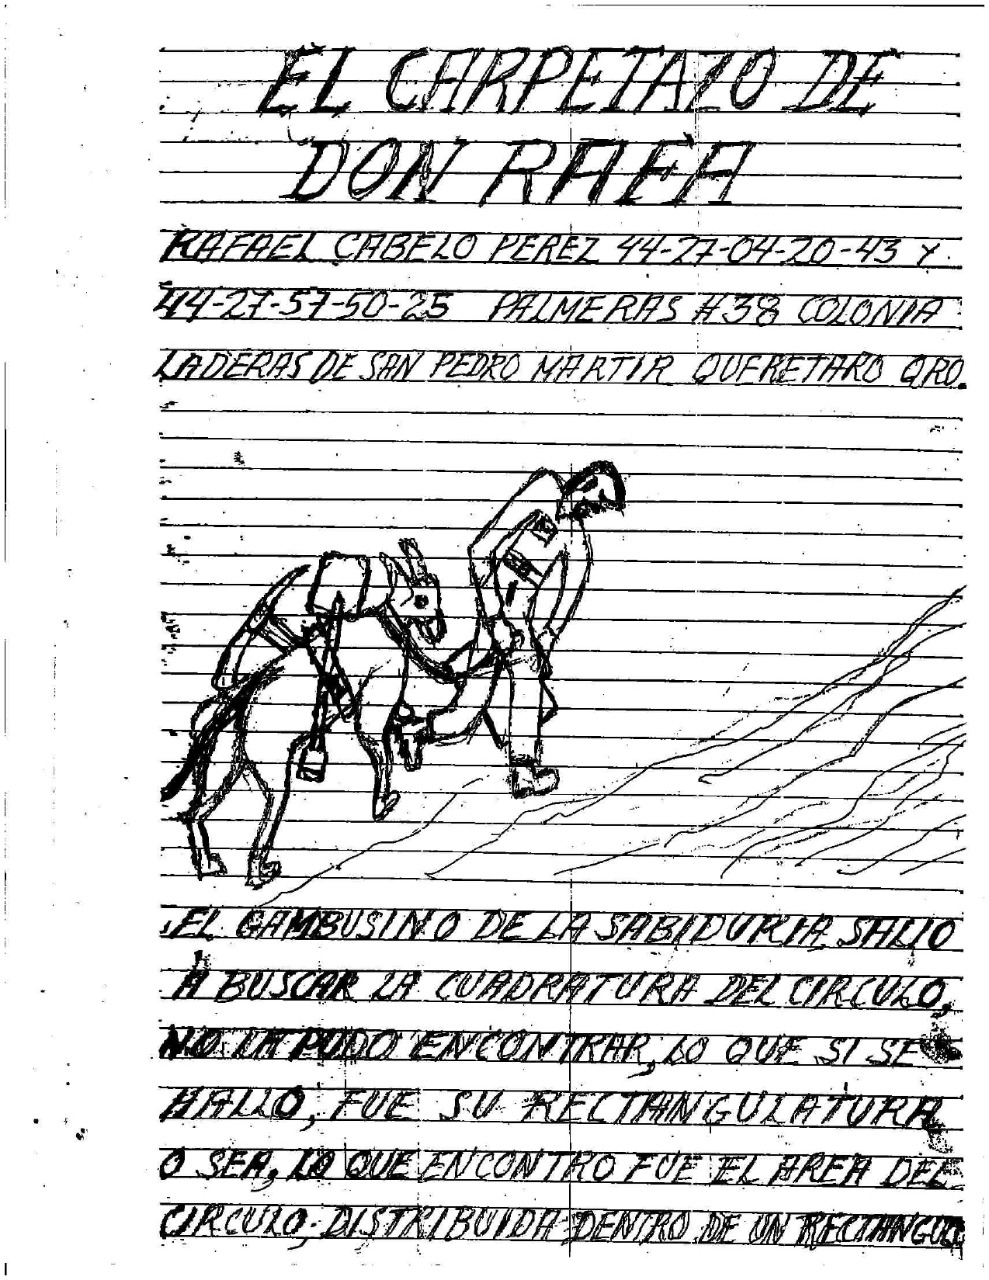 EL CARPETAZO DE
DON RAFA
RAFAEL CABELO PEREZ 44-27-04-20-43 Y
44-27-57-50-25 PALMERAS #38 COLONIA
LADERAS DE SAN PEDRO MARTIR QUERETARO QRO.
EL GAMBUSINO DE LA SABIDURIA SALIO
A BUSCAR LA CUADRATURA DEL CIRCULO,
NO LA PUDO ENCONTRAR, LO QUE SI SE
HALLO, FUE SU RECTANGULATURA
O SEA, LO QUE ENCONTRO FUE EL AREA DEL
CIRCULO, DISTRIBUIDA DENTRO DE UN RECTANGULO